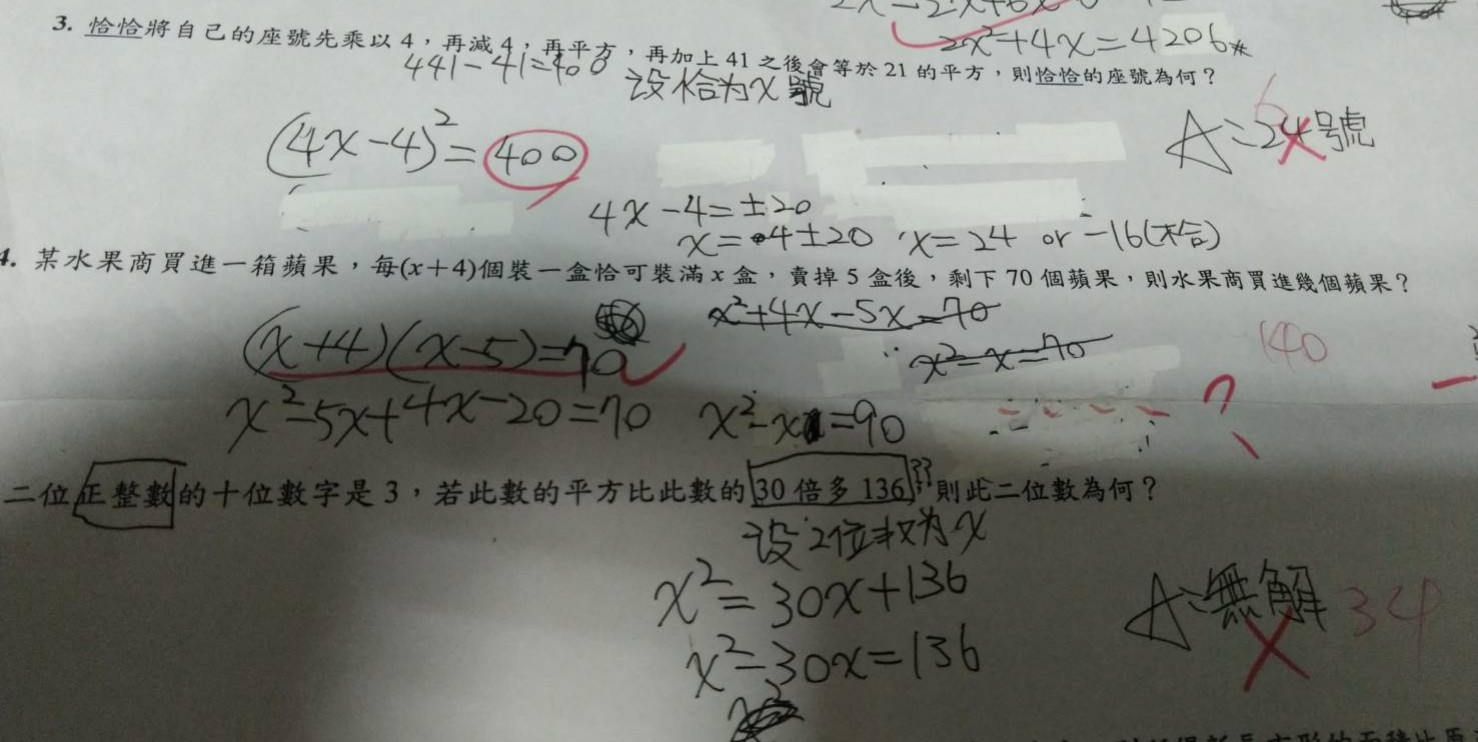 2x²+4x=4206
3. 恰恰將自己的座號先乘以 4,再減 4,再平方,再加上 41 之後會等於 21 的平方,則恰恰的座號為何?
441-41=400
设恰为x號
(4x-4)²=400
6
A:24號
4x-4=±20
x=4±20 x=24 or -16(不合)
4. 某水果商買進一箱蘋果,每(x+4)個裝一盒恰可裝滿 x 盒,賣掉 5 盒後,剩下 70 個蘋果,則水果商買進幾個蘋果?
x²+4x-5x=70
(x+4)(x-5)=70
x²-x=70
140
?
x²-5x+4x-20=70 x²-x=90
二位正整數的十位數字是 3,若此數的平方比此數的 30 倍多 136,則此二位數為何?
??
设2位数为x
x²=30x+136
A:無解 34
x²-30x=136